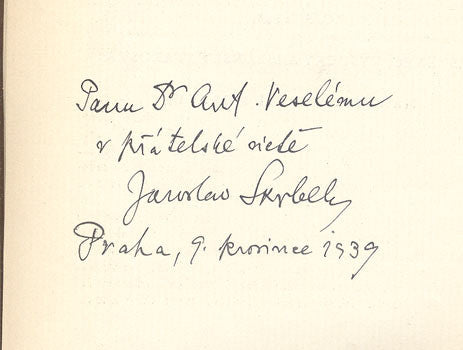 Panu Dr Ant. Veselému
v přátelské úctě
Jaroslav Skrbek
Praha, 9. prosince 1939